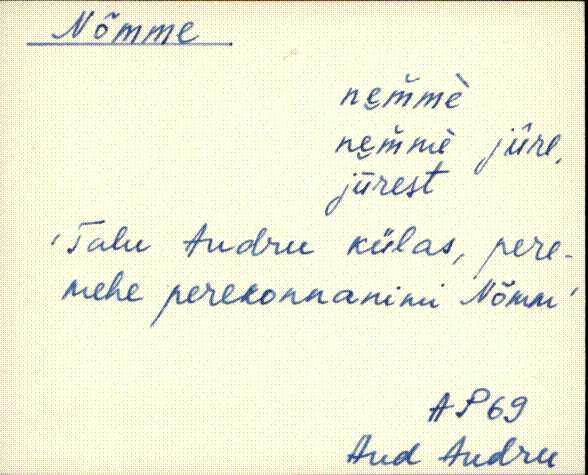 Nõmme
nem̆mè
nem̆mè jūre,
jūrest
'Talu Andru külas, pere-
mehe perekonnanimi Nõmm'
AP69
Aud Andru